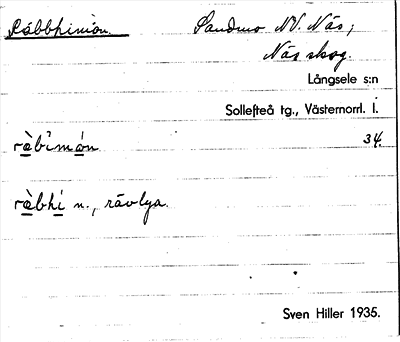 Råbbhimon. Sandmo NV Näs,
Näs skog.
Långsele s:n
Sollefteå tg., Västernorrl. l.
34.
ràbⁱmán
ràbhi n., rävlya.
Sven Hiller 1935.